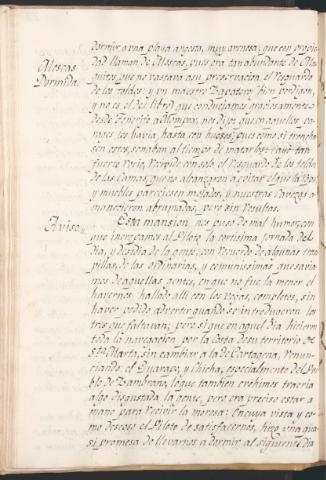 dormir a una playa angosta, muy arenosa; que con propie-
dad llaman de Moscas, pues era tan abundante de Mos-
quitos, que no vastava a su preservacion el resguardo
de los toldos; y un maestro Zapatero, (bien por digon,
y no es el del libro) que condugimos graciosamente
desde Tenerife a Mompox, nos dijo; que en aquellos ca-
nales los havia, hasta con huesos, pues como si trincha-
sen estos, sonaban al tiempo de matarlos: cayò tan
fuerte rocio,
de las Camas, que no alcanzaron a evitar el que la Ropa,
y muebles pareciesen mojados, y nuestras Cavezas a-
manecieron abrumadas, pero sin resultas.
Moscas
Dormida.
Aviso
Esta mansion nos puso de mal humor, con
que increpamos al Piloto la cortisima jornada del
dia, y desidia de la gente, con recuerdo de algunas
pillas, de las ordinarias, y comunisimas que savia-
mos de aquellas gentes, en que no fue la menor el
havernos hallado alli con los vogas, completos, sin
haver podido advertir quando se introdugeron los
tres que faltavan; pero si que en aquel dia hicieron
toda la navegacion por la Costa de su territorio de
Sta. Marta, sin cambiar a la de Cartagena, renun-
ciando el Guarapo, y Chicha, especialmente del Pue-
blo de Zambrano, logue tambien crehimos traeria
algo disgustada la gente, pero era preciso estar a
mano para recivir la merced: En cuya vista y co-
mo deseoso el Piloto de satisfacernos, hizo una qua-
si promesa de llevarnos a dormir al siguiente dia